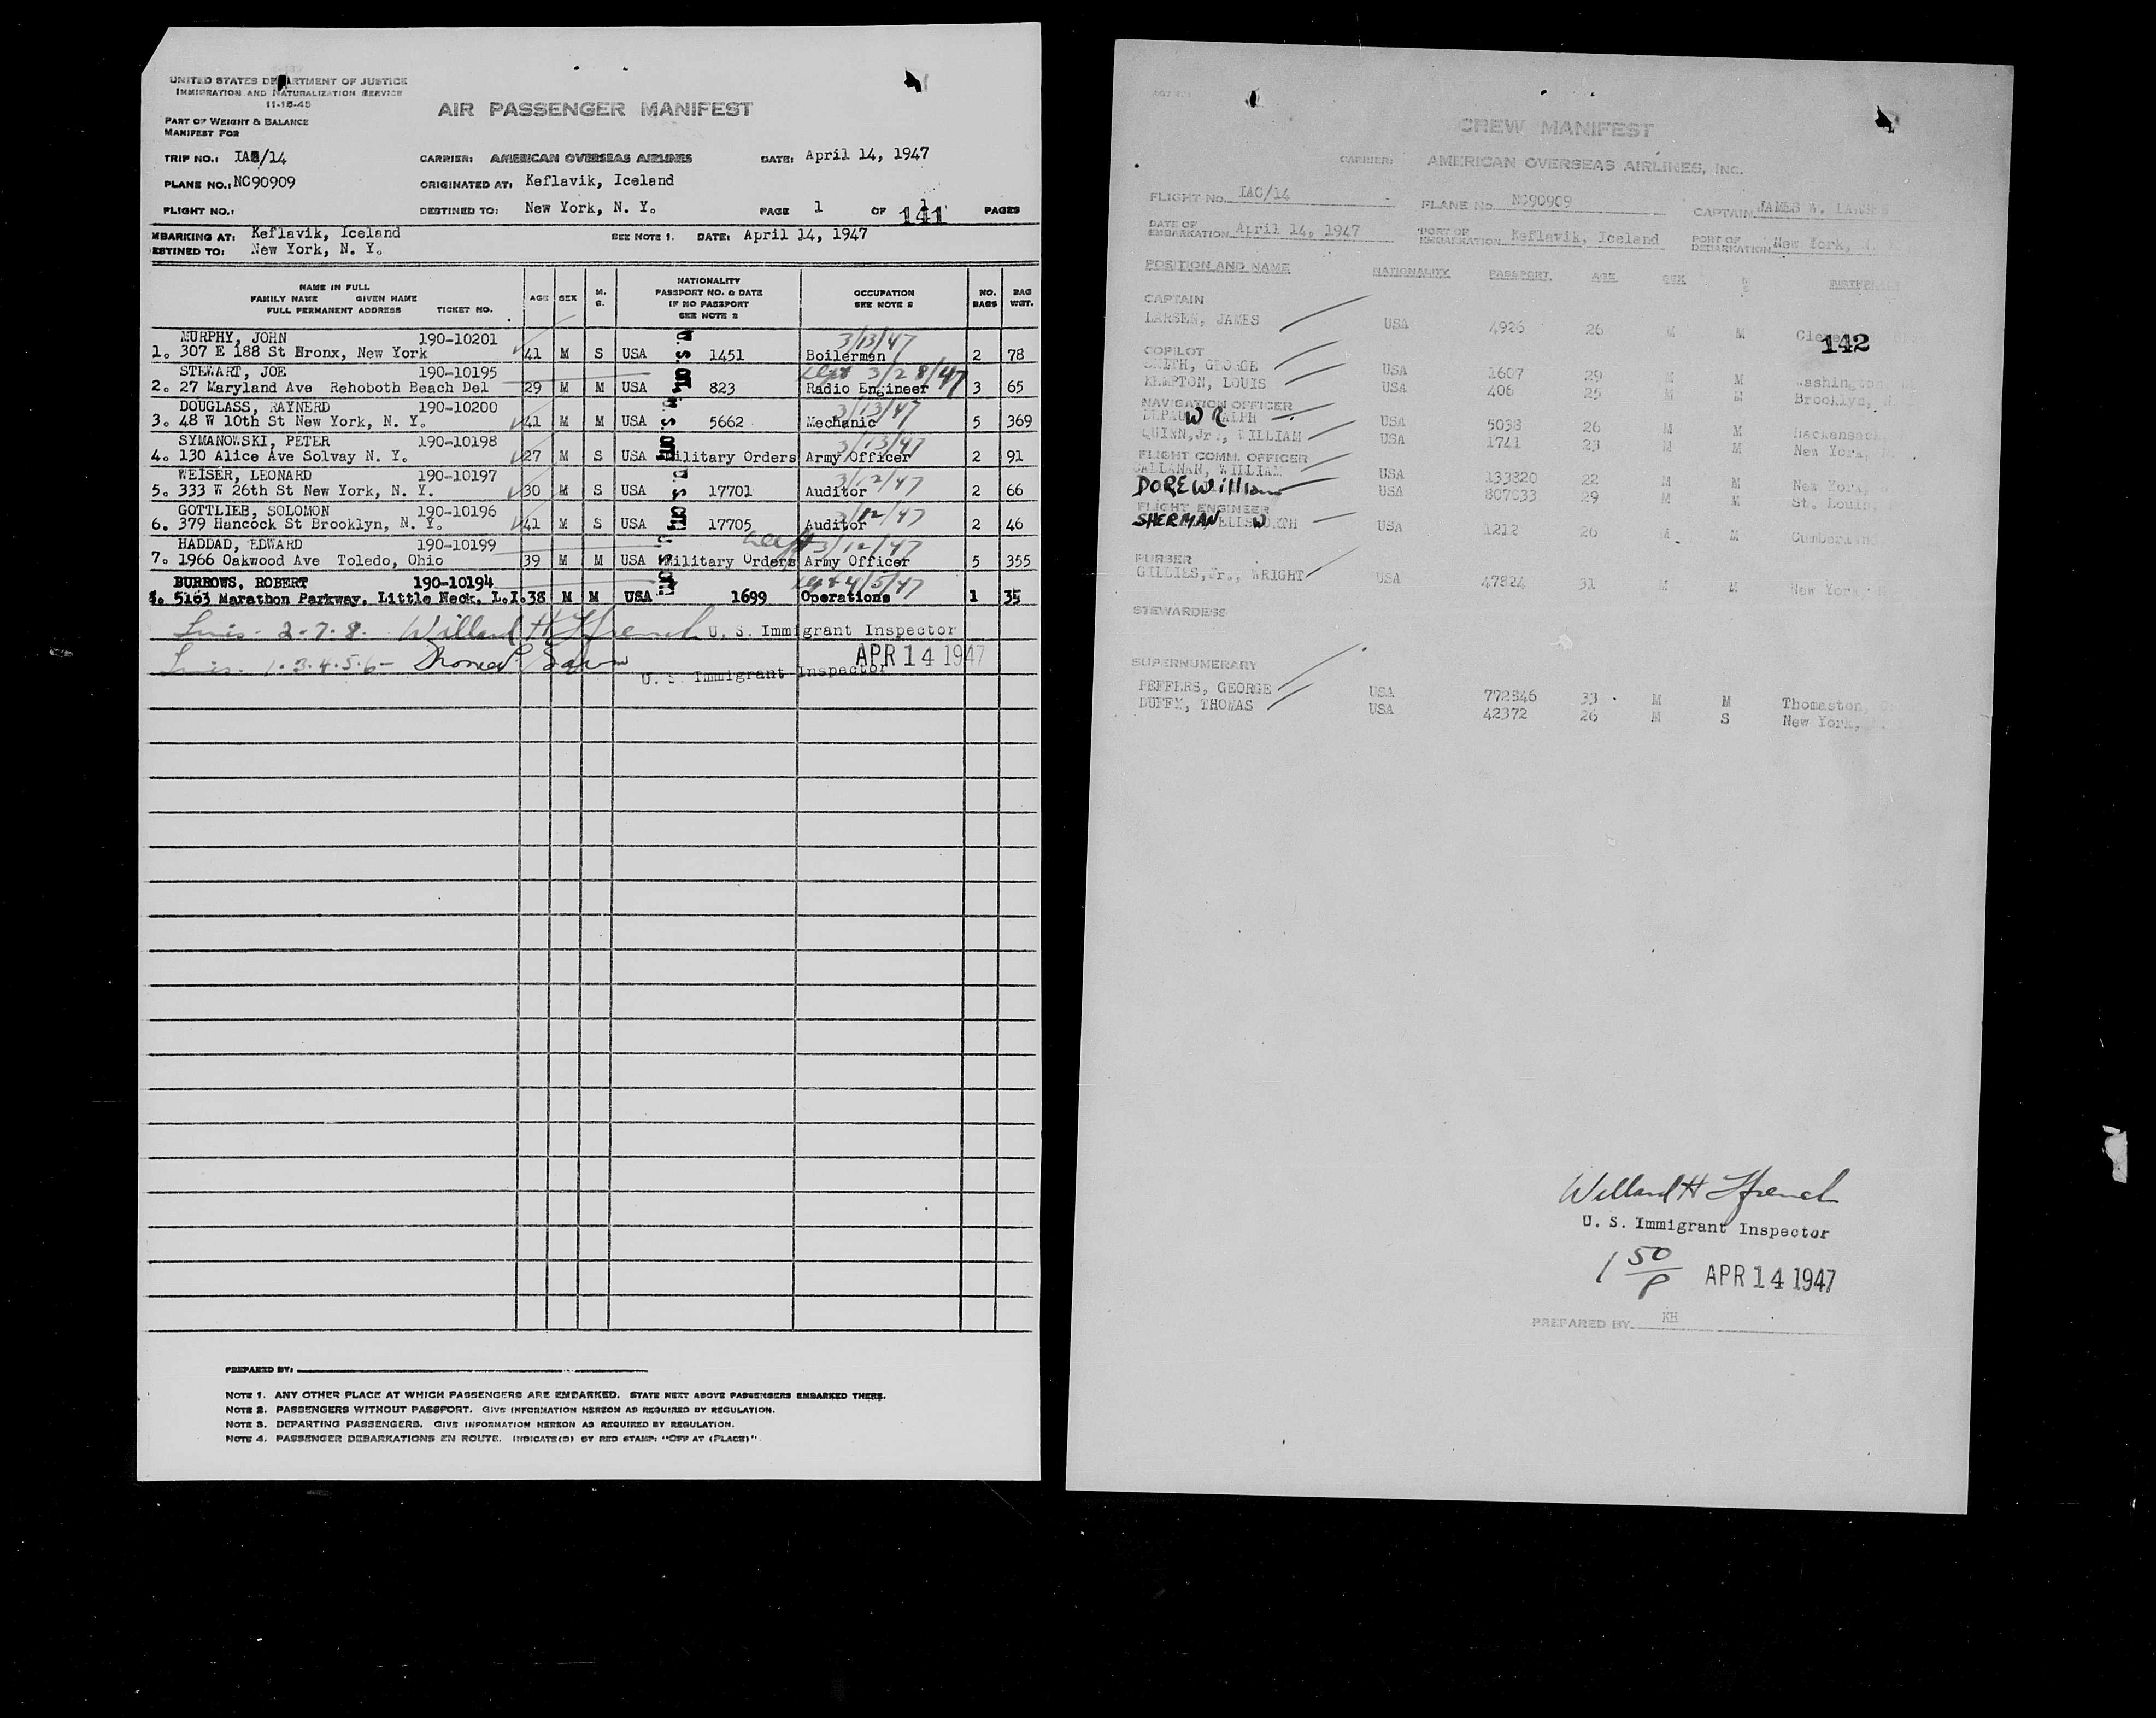 UNITED STATES DEPARTMENT OF JUSTICE
IMMIGRATION AND NATURALIZATION SERVICE
11-15-45
AIR PASSENGER MANIFEST
PART OF WEIGHT & BALANCE
MANIFEST FOR
TRIP NO.: /14 CARRIER: AMERICAN OVERSEAS AIRLINES DATE: April 14, 1947
PLANE NO.: NC90909 ORIGINATED AT: Keflavik, Iceland
FLIGHT NO.: DESTINED TO: New York, N. Y. PAGE 1 OF 1 PAGES
141
MBARKING AT: Keflavik, Iceland SEE NOTE 1. DATE: April 14, 1947
ESTINED TO: New York, N. Y.
NAME IN FULL
FAMILY NAME GIVEN NAME
FULL PERMANENT ADDRESS TICKET NO.
AGE SEX M. S.
NATIONALITY
PASSPORT NO. & DATE
IF NO PASSPORT
SEE NOTE 2
OCCUPATION
SEE NOTE 2
NO. BAGS
BAG WGT.
MURPHY, JOHN 190-10201 3/13/47
1. 307 E 188 St Bronx, New York 41 M S USA 1451 Boilerman 2 78
STEWART, JOE 190-10195 3/28/47
2. 27 Maryland Ave Rehoboth Beach Del 29 M M USA 823 Radio Engineer 3 65
DOUGLASS, RAYNERD 190-10200 3/13/47
3. 48 W 10th St New York, N. Y. 41 M M USA 5662 Mechanic 5 369
SYMANOWSKI, PETER 190-10198 3/13/47
4. 130 Alice Ave Solvay N. Y. 27 M S USA Military Orders Army Officer 2 91
WEISER, LEONARD 190-10197 3/12/47
5. 333 W 26th St New York, N. Y. 30 M S USA 17701 Auditor 2 66
GOTTLIEB, SOLOMON 190-10196 3/12/47
6. 379 Hancock St Brooklyn, N. Y. 41 M S USA 17705 Auditor 2 46
HADDAD, EDWARD 190-10199 3/12/47
7. 1966 Oakwood Ave Toledo, Ohio 39 M M USA Military Orders Army Officer 5 355
BURROWS, ROBERT 190-10194 4/5/47
5163 Marathon Parkway, Little Neck, L.I. 38 M M USA 1699 Operations 1 35
2-7-8- Willard H Ffrench U. S. Immigrant Inspector
1-3-4-5-6- APR 14 1947
U. S. Immigrant Inspector
PREPARED BY:
NOTE 1. ANY OTHER PLACE AT WHICH PASSENGERS ARE EMBARKED. STATE NEXT ABOVE PASSENGERS EMBARKED THERE.
NOTE 2. PASSENGERS WITHOUT PASSPORT. GIVE INFORMATION HEREON AS REQUIRED BY REGULATION.
NOTE 3. DEPARTING PASSENGERS. GIVE INFORMATION HEREON AS REQUIRED BY REGULATION.
NOTE 4. PASSENGER DEBARKATIONS EN ROUTE. INDICATE(D) BY RED STAMP: "OFF AT (PLACE)"
CREW MANIFEST
CARRIER: AMERICAN OVERSEAS AIRLINES, INC.
FLIGHT No. IAC/14 PLANE No. NC90909 CAPTAIN JAMES W. LARSEN
DATE OF EMBARKATION April 14, 1947 PORT OF EMBARKATION Keflavik, Iceland PORT OF DEBARKATION New York,
POSITION AND NAME NATIONALITY PASSPORT AGE SEX M S
CAPTAIN
LARSEN, JAMES USA 4926 26 M M
142
COPILOT
SMITH, GEORGE USA 1607 29 M M Washington
KEMPTON, LOUIS USA 406 25 M M Brooklyn,
NAVIGATION OFFICER
W RALPH USA 5038 26 M M Hackensack,
QUINN, Jr., WILLIAM USA 1741 23 M M New York,
FLIGHT COMM. OFFICER
CALLANAN, WILLIAM USA 133820 22 M M New York,
DORE William USA 807633 29 M M St. Louis,
FLIGHT ENGINEER
SHERMAN ELLSWORTH W USA 1212 26 M M
PURSER
GILLIES, Jr., WRIGHT USA 47824 31 M M New York,
STEWARDESS
SUPERNUMERARY
PEFFERS, GEORGE USA 772846 33 M M Thomaston,
DUFFY, THOMAS USA 42372 26 M S New York,
Willard H Ffrench
U. S. Immigrant Inspector
1 50/P APR 14 1947
PREPARED BY KH